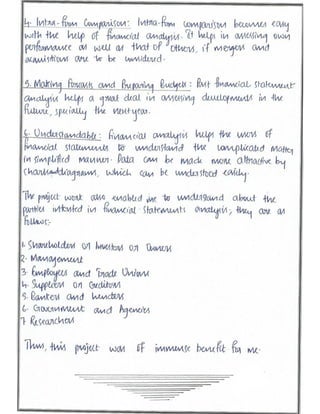 4. Intra-firm Comparison: Intra-firm comparison becomes easy
with the help of financial analysis. It helps in assessing own
performance as well as that of others, if mergers and
acquisitions are to be considered.
5. Making Forecasts and Preparing Budgets: Past financial statement
analysis helps a great deal in assessing developments in the
future, specially the next year.
6. Understandable: Financial analysis helps the users of
financial statements to understand the complicated matter
in simplified manner. Data can be made more attractive by
charts diagrams, which can be understood easily.
The project work also enabled me to understand about the
parties intrested in financial statements analysis, they are as
follows:-
1. Shareholders or Investors or Owners
2. Management
3. Employees and Trade Unions
4. Suppliers or Creditors
5. Bankers and Lenders
6. Government and Agencies
7. Researchers
Thus, this project was of immense benefit for me.